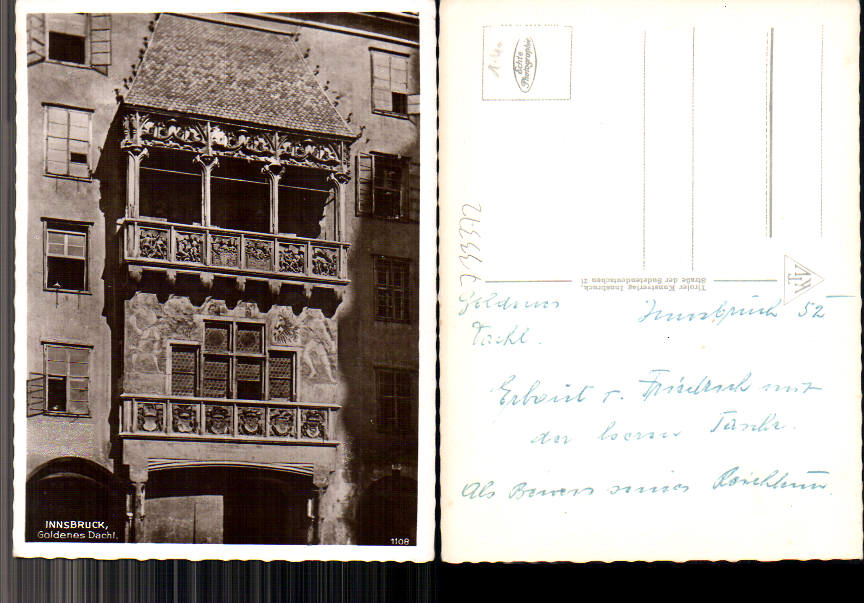 INNSBRUCK,
Goldenes Dachl.
1108
Echte
Photographie
Tiroler Kunstverlag Innsbruck,
Straße der Sudetendeutschen 21
Goldenes Innsbruck 52
Dachl.
Erbaut v. Friedrich mit
der leeren Tasche.
Als Beweis seines Reichtum